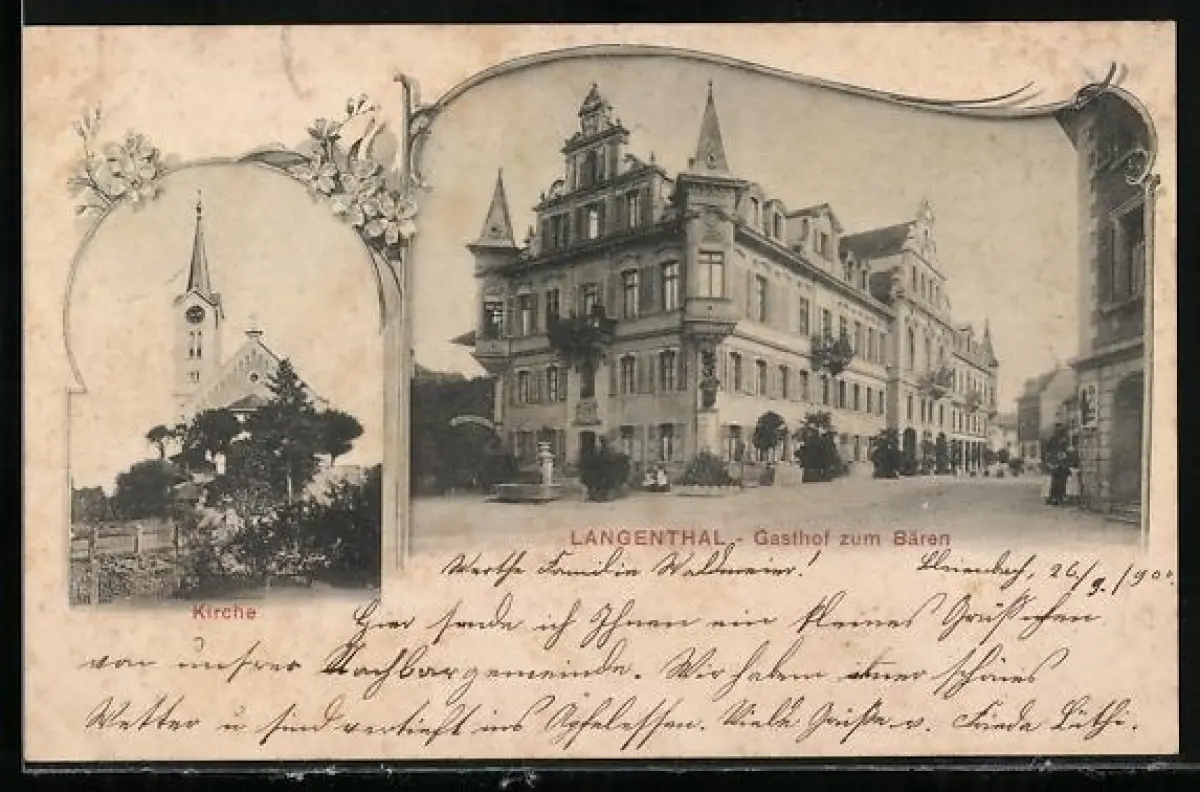 LANGENTHAL - Gasthof zum Bären
Kirche
Werthe Familie Waldmeier! Bleienbach, 26/9./1900.
Hier sende ich Ihnen ein kleines Grüsschen
von unsrer Nachbargemeinde. Wir haben immer schönes
Wetter u sind vertieft ins Äpfelessen. Viele Grüße v. Frieda Lüthi.